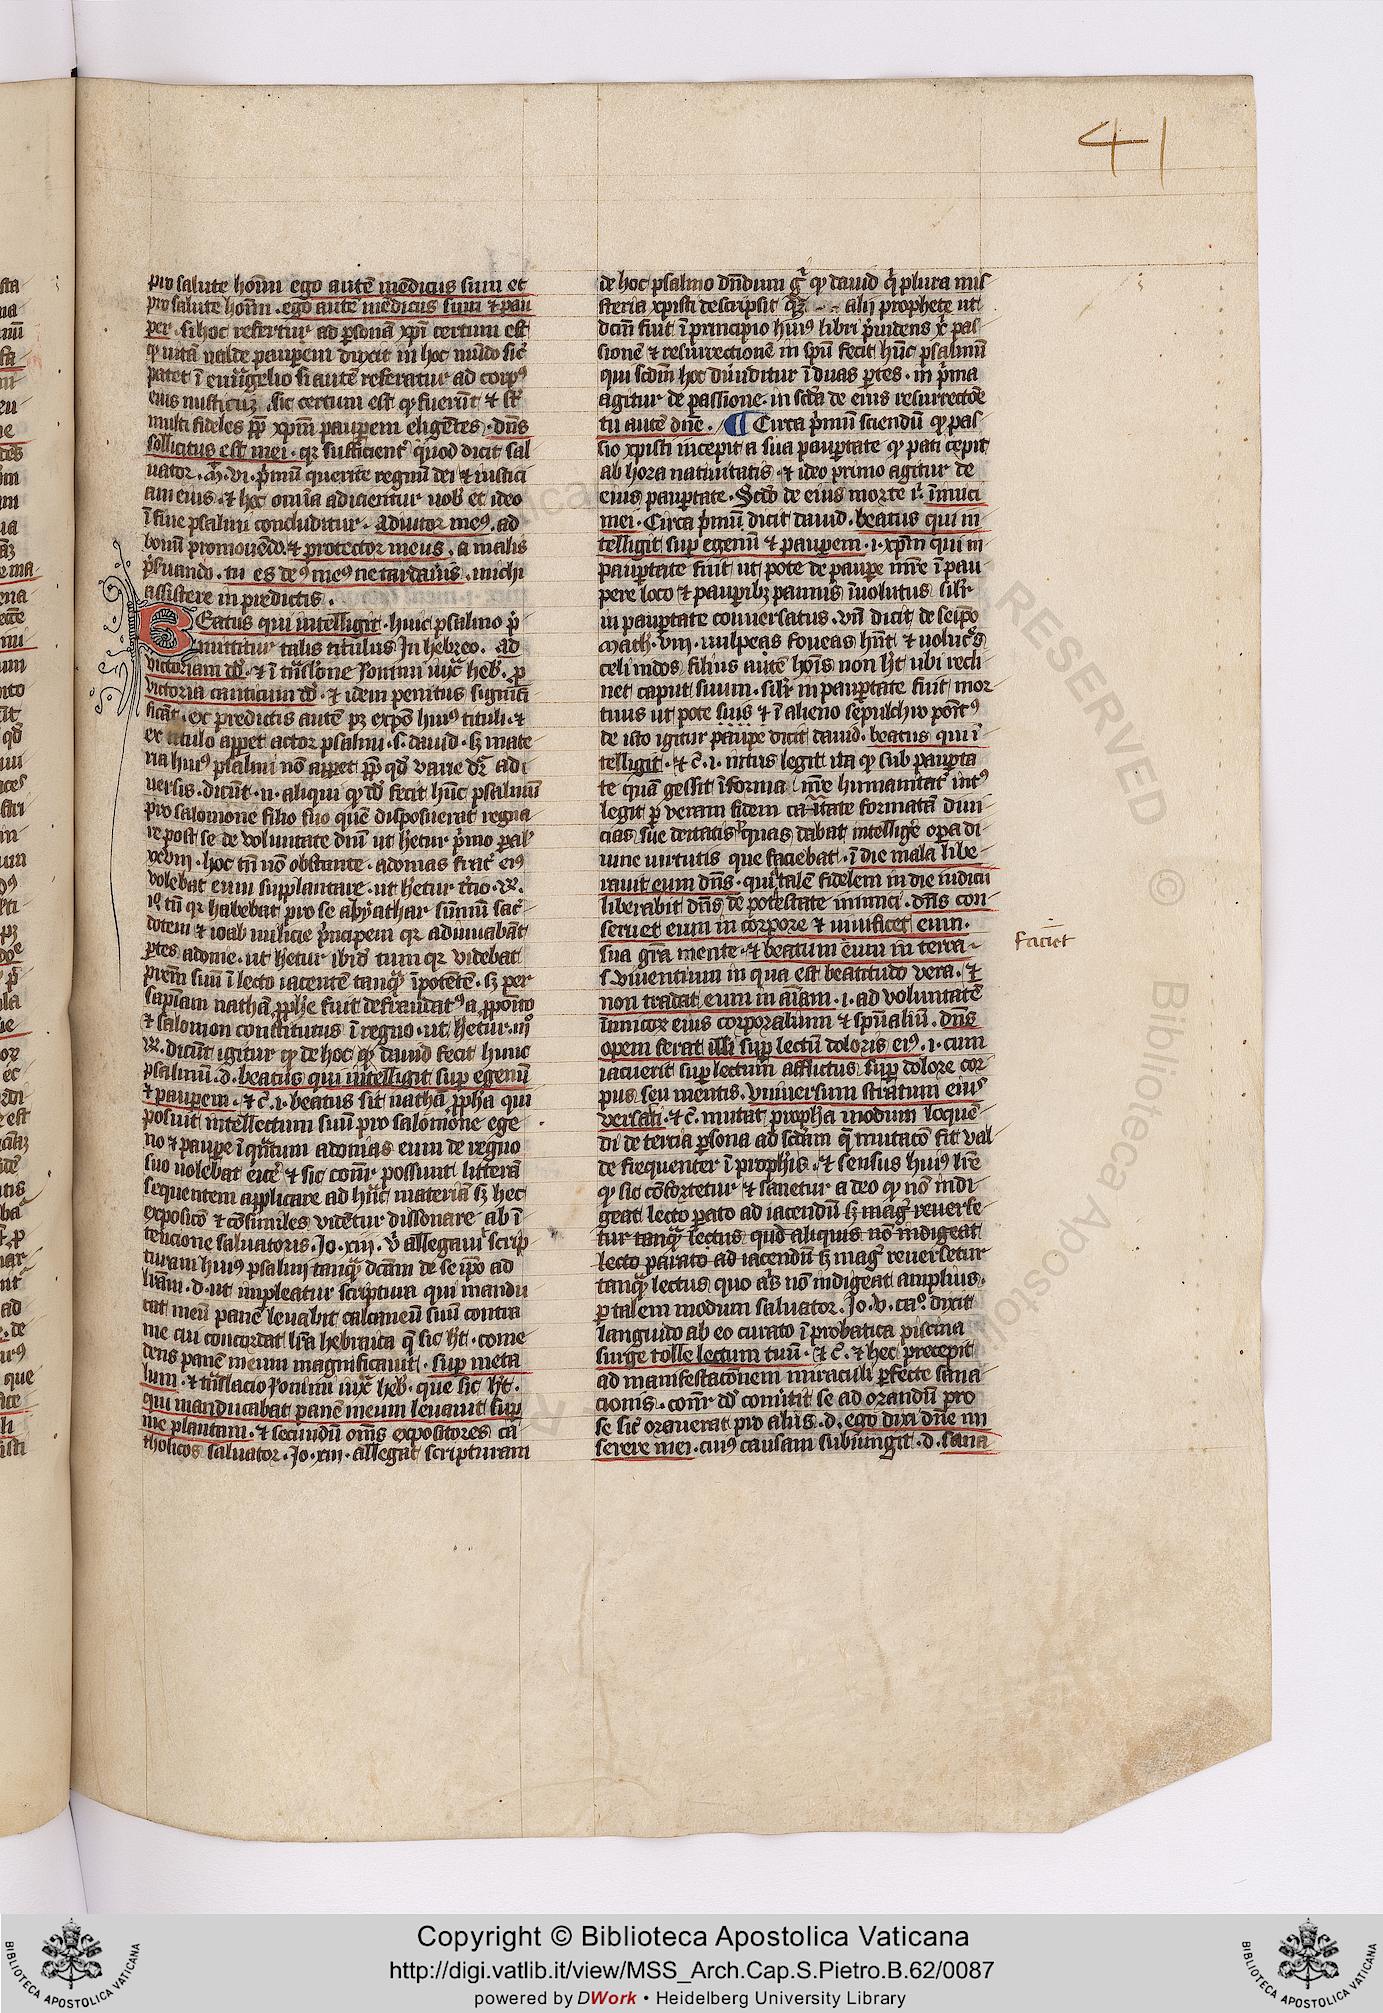 41
pro salute hoīm ego autē mēdicus sum et
pro salute hoīm . ego autē mēdicus sum ⁊ pau
per . si hoc refertur ad ꝑsonā xp̄i certum est
ꝙ uitā ualde pauꝑem duxit in hoc mūdo sic̄
patet ī euāgelio si autē referatur ad corpꝰ
eius misticuꝫ . sic certum est ꝙ fuerūt ⁊ sūt
multi fideles ꝓpt xp̄m pauꝑem eligētes . dn̄s
sollicitus est mei . qꝛ sufficient̄ quod dicit sal
uator . m̄ . vi . p̄mū querite regnū dei ⁊ iustici
am eius . ⁊ hec omīa adicientur uob̄ et ideo
ī fine psalmi concluditur . Adiutor meꝰ . ad
bonū promouēdo . ⁊ protector meus . a malis
p̄seruando . tu es deꝰ meꝰ ne tardaūis . michi
assistere in predictis .
Beatus qui intelligit . huic psalmo p̄
mittitur talis titulus In hebreo . ad
victoriam dd̄ . ⁊ ī trās̄lone Ieronimi iux̄ heb̄ . ꝓ
victoria canticum dd̄ . ⁊ idem penitus signifi
ficāt . ex predictis autē pꝫ expō huiꝰ tituli . ⁊
ex titulo apꝑet actor psalmi . s . dauid . sꝫ mate
ria huiꝰ psalmi nō apꝑet ꝓpt qd̄ varie dr̄ a di
uersis . dicūt . n . aliqui ꝙ dd̄ fecit hūc psalmū
pro salomone filio suo quē disposuerat regna
re post se de voluntate dn̄i ut hētur p̄mo paral̄
xxviii . hoc tn̄ nō obstante . adonias frat̄ eiꝰ
volebat eum supplantare . ut hētur tercio . ꝶ .
iꝰ tn̄ qꝛ habebat pro se abyathar sūmū sac̄
dotem ⁊ ioab milicie p̄ncipem qꝛ adiuuabāt
ꝑtes adonie . ut hētur ibid̄ tum qꝛ videbat
patrem suū ī lecto iacentē tanqꝫ īpotētē . sꝫ per
sapiam nathā ꝓphē fuit defraudatꝰ a ꝓposito
⁊ salomon constitutus ī regno . ut hētur . iiiꝰ
ꝶ . dicūt igitur ꝙ de hoc ꝙ dauid fecit hunc
psalmū . d . beatus qui intelligit suꝑ egenū
⁊ pauꝑem . ⁊ c̄ . i . beatus sit nathā ꝓpha qui
posuit intellectum suū pro salomone ege
no ⁊ pauꝑe ī qntum adonias eum de regno
suo uolebat eicē ⁊ sic com̄r possunt litterā
sequentem applicare ad hāc materiā sꝫ hec
expositō ⁊ cōsimiles vidētur dissonare ab ī
tencione saluatoris . Jo . xiii . ū allegauit̄ scrip
turam huiꝰ psalmi tanqꝫ dc̄am de seipō ad
l̄ram . d . ut impleatur scriptura qui mandu
cat meū panē leuabit calcaneū suū contra
me cui concordat l̄ra hebraica q̄ sic h̄t . come
dens panē meum magnificauit . suꝑ meta
lum . ⁊ trās̄lacio Ieronimi iux̄ heb̄ . que sic h̄t .
qui manducabat panē meum leuauit suꝑ
me plantam . ⁊ secundū om̄s expositores ca
tholicos saluator . Jo . xiii . allegat scripturam
de hoc psalmo dn̄dum ḡ ꝙ dauid q̄ plura mis
steria xp̄isti descripsit qꝫ alij prophete ut
dcm̄ fuit ī principio huiꝰ libri p̄uidens xp̄i pas
sionē ⁊ resurrectionē in spū fecit hūc psalmū
qui scdm̄ hoc diuiditur ī duas ꝑtes . in p̄ma
agitur de passione . in scd̄a de eius resurrectōe
tu autē dn̄e . ¶ Circa p̄mū sciendū ꝙ pas
sio xp̄isti incepit a sua pauꝑtate ꝙ pati cepit
ab hora natiuitatis . ⁊ ideo primo agitur de
eius pauꝑtate . Scd̄o de eius morte ī . īimici
mei . Circa p̄mū dicit dauid . beatus qui in
telligit suꝑ egenū ⁊ pauꝑem . i . xp̄m qui in
pauꝑtate fuit ut pote de pauꝑe mr̄e ī pau
pere loco ⁊ pauꝑibꝫ pannis īuolutus silr̄
in pauꝑtate conuersatus . vn̄ dicit de seipō
Math̄ . viii . vulpeas foueas hn̄t . ⁊ uolucres
celi nidos . filius autē hōis non h̄t ubi recli
net caput suum . silr̄ in pauꝑtate fuit mor
tuus ut pote suis ⁊ ī alieno sepulchro posit̄ꝰ
de isto igitur paupe dicit dauid . beatus qui ī
telligit . ⁊ c̄ . i . intus legit ita ꝙ sub pauꝑta
te quā gessit ī forma mr̄e humanitat̄ intꝰ
legit ꝑ veram fidem caritate formatā diui
cias sue deitatis quas dabat intelligē oꝑa di
uine uirtutis que faciebat . ī die mala libe
rauit eum dn̄s . qui talē fidelem in die iudicii
liberabit dn̄s de potestate inimici . dn̄s con
seruet eum in corpore ⁊ uiuificet eum .
sua gr̄a mente . ⁊ beatum eum in terra
s viuentium in qua est beatitudo vera . ⁊
non tradat eum in aīam . i . ad voluntatē
īimicoꝝ eius corporalium ⁊ spūaliū . dn̄s
opem ferat illi suꝑ lectū doloris eiꝰ . i . cum
iacuerit suꝑ lectum afflictus suꝑ dolore cor
pus seu mentis . vniuersum stratum eius
versati . ⁊ c̄ . mutat propha modum loquē
di de tercia ꝑsona ad scd̄am q̄ mutacō fit val
de frequenter ī prophīs . ⁊ sensus huiꝰ lr̄e
ꝙ sic cōfortetur ⁊ sanetur a deo ꝙ nō indi
geat lecto ꝑato ad iacendū sꝫ maḡ reuerse
tur tanqꝫ lectus quod aliquis nō indigeat
lecto parato ad iacendū sꝫ maḡ reuersetur
tanqꝫ lectus quo aīs nō indigeat amplius .
ꝑ talem modum saluator . Jo . v . caº . dixit
languido ab eo curato ī probatica piscina
surge tolle lectum tuū . ⁊ c̄ . ⁊ hec precepit
ad manifestacōnem miraculi ꝑfecte sana
cionis . com̄r dd̄ conūtit se ad orandū pro
se sic̄ orauerat pro aliis . d . ego dixi dn̄e mi
serere mei . cuiꝰ causam subiungit . d . sana
faciet
RESERVED © Biblioteca Apostolica
Copyright © Biblioteca Apostolica Vaticana
http://digi.vatlib.it/view/MSS_Arch.Cap.S.Pietro.B.62/0087
powered by DWork • Heidelberg University Library
BIBLIOTECA APOSTOLICA VATICANA
BIBLIOTECA APOSTOLICA VATICANA